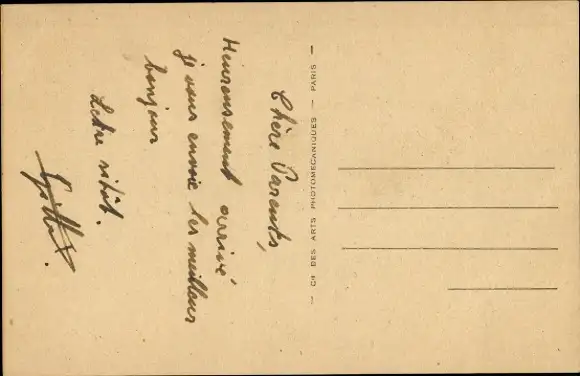 Chère Parents,
Heureusement arrivé
je vous envoie les meilleurs
bonjour
Lettre sitôt.
— CH DES ARTS PHOTOMECANIQUES — PARIS —